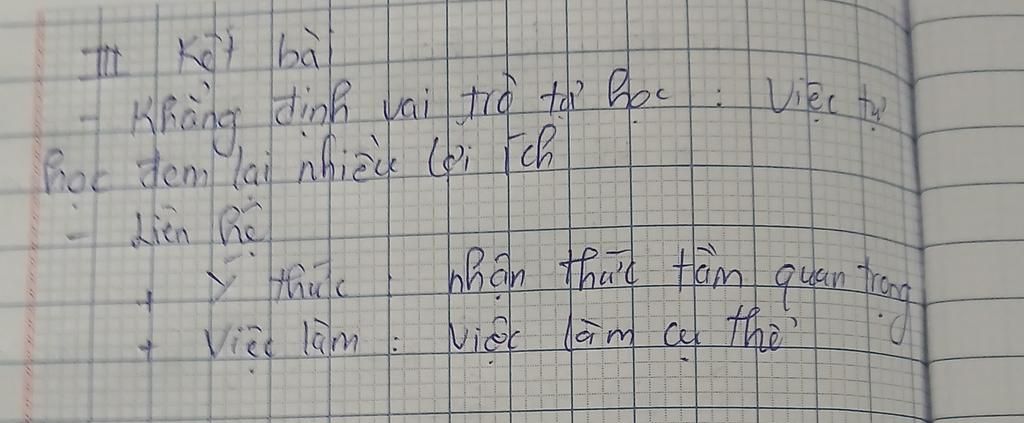 III Kết bài
- Khẳng định vai trò tự học : Việc tự
học đem lại nhiều lợi ích
- Liên hệ
+ Ý thức : nhận thức tầm quan trọng
+ Việc làm : Việc làm cụ thể